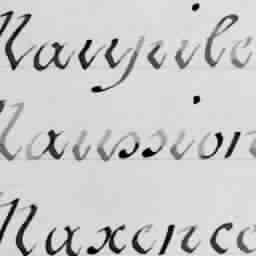 Maupile
Maussion
Maxence